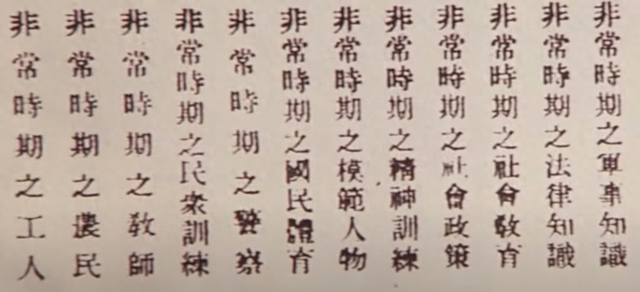 非常時期之軍事知識
非常時期之法律知識
非常時期之社會教育
非常時期之社會政策
非常時期之精神訓練
非常時期之模範人物
非常時期之國民體育
非常時期之警察
非常時期之民衆訓練
非常時期之教師
非常時期之農民
非常時期之工人